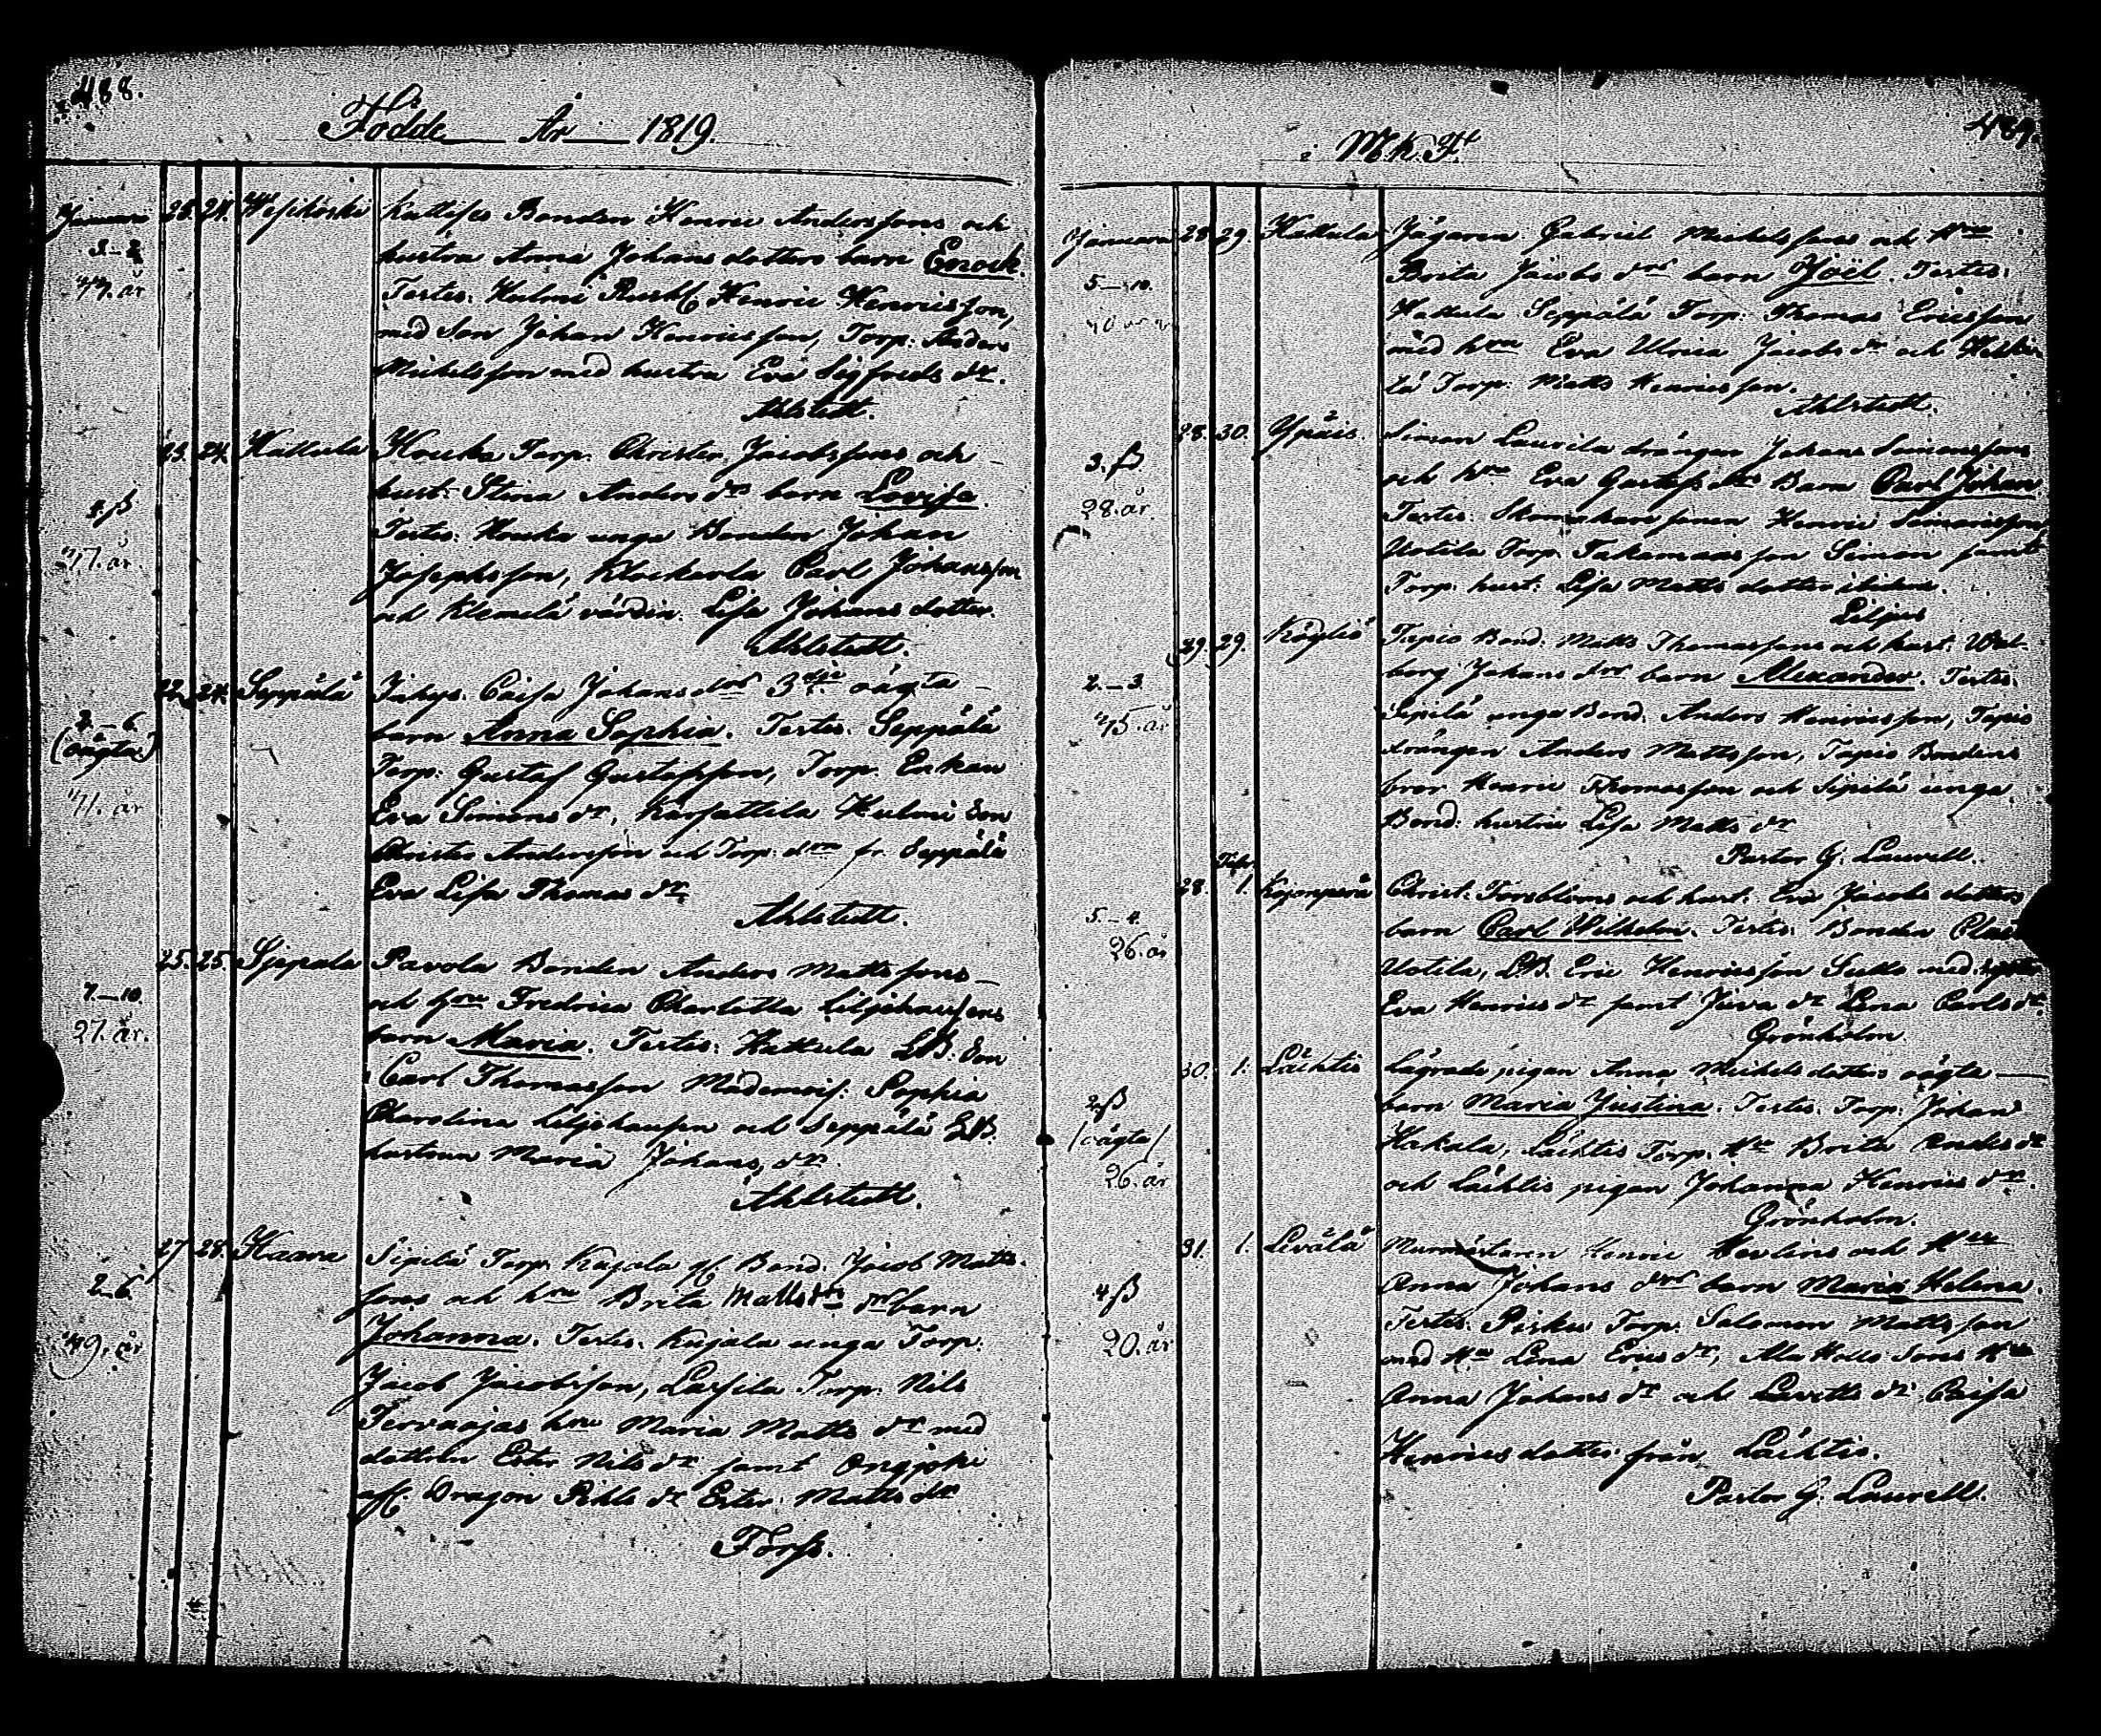 488.
Födde År 1819.
Januari 23. 24. Wesikoski Kattises Bonden Henric Anderssons och
3-2 hustru Anna Johans dotters barn Enock.
44. år Testes: Kulmi Rusth. Henric Henricsson,
med Son Johan Henricsson, Torp: Anders
Michelsson med hustru Eva Sigfreds dr.
Ahlstedt.
23. 24. Kattula Kouka Torp. Christer Jacobssons och
hust: Stina Anders drs barn Lovisa.
4. ß Testes: Kouka unga Bonden Johan
47. år. Josephsson, Klockarla Carl Johansson
och Klemelä värdin: Lisa Johans dotter.
Ahlstedt.
22. 24. Seppälä Inhys. Caisa Johans drs 3dje oägta
2-6 barn Anna Sophia. Testes: Seppälä
(oägta) Torp: Gustaf Gustafsson, Torp. Enkan
41. år Eva Simons dr, Karsattila Kulmi Son
Christer Andersson och Torp: drn fr. Seppälä
Eva Lisa Thomas dr.
Ahlstedt.
25. 25. Sjeppälä Pavola Bonden Anders Mattssons
7-10. och hru Fredrica Charlotta Liljehausens
27. år. barn Maria. Testes: Kattula LB. Son
Carl Thomasson Mademois: Sophia
Charolina Liljehausen och Seppälä LB.
hustrun Maria Johans dr.
Ahlstedt.
27. 28. Haara Sipilä Torp. Kajala af Bond. Jacob Matts-
2-6. sons och hru Brita Matts drs barn
49. år Johanna. Testes: Kajala unga Torp:
Jacob Jacobsson, Lassila Torp: Nils
Tervaojas hru Maria Matts dr med
dottren Ester Nils dr samt Ongjoki
aff. Dragon Pihls dr Ester Matts dr
Forss.
489.
M. k. Ft
Januari 28. 29. Kattula Jägaren Gabriel Michelssons och Hrus
5-10. Brita Jacobs drs barn Joël. Testes:
Kattula Seppälä Torp: Thomas Ericsson
med hru Eva Ulrica Jacobs dr och
Torp: Matts Henricsson.
Ahlstedt.
28. 30. Ypäis. Simon Laurila drängen Johans Simonssons
3. ß och hrus Eva Gustafs drs Barn Carl Johan
28. år Testes: Henric Simonsson
Uotila Torp. Takamaas son Simon samt
Torp. hust: Lisa Matts dotter ibidem.
Liljus
29. 29. Köyliö Tapio Bond: Matts Thomassons och hust: Wal-
2.-3. borg Johans drs barn Alexander. Testes:
45. år Sipilä unga Bond: Anders Henricsson, Tapio
drängen Anders Mattsson, Tapio Bondens
bror Henric Thomasson och Sipilä unga
Bond: hustru Lisa Matts dr
Pastor G: Laurell.
Febr.
28. 1. Kyonperä Christ: Forsbloms och hust: Eva Jacobs dotters
5.-4. barn Carl Wilhelm. Testes: Bonden
26. år Uotila, LB. Eric Henricsson Sukko med
Eva Henrics dr samt Juva dr Lena Carls dr.
Grönholm.
30. 1. Lähtis Lägrade pigan Anna Michels dotters oägta
2. ß barn Maria Justina. Testes: Torp: Johan
/oägta/ Hakala, Lähtis Torp. Hru Brita Anders dr
26. år och Lähtis pigan Johanna Henrics dr.
Grönholm.
31. 1. Levälä Murmästaren Henric Hevlins och Hrus
4 ß Anna Johans drs barn Maria Helena.
20. år Testes: Pirku Torp: Salomon Mattsson
med Hru Lena Erics dr, Ala Hollo Sons Hru
Anna Johans dr och Lavitts dr Caisa
Henrics dotter från Lähtis.
Pastor G: Laurell.